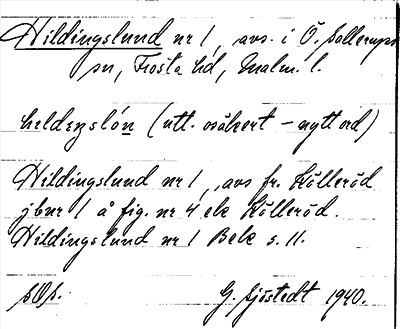 Hildingslund nr 1, avs. i Ö. Sallerups
sn, Frosta hd, Malm. l.
(utt. osäkert – nytt ord)
Hildingslund nr 1, avs fr. Kölleröd
jbnr 1 å fig. nr 4 ek Kölleröd.
Hildingslund nr 1 Bek s. 11.
G. Sjöstedt 1940.